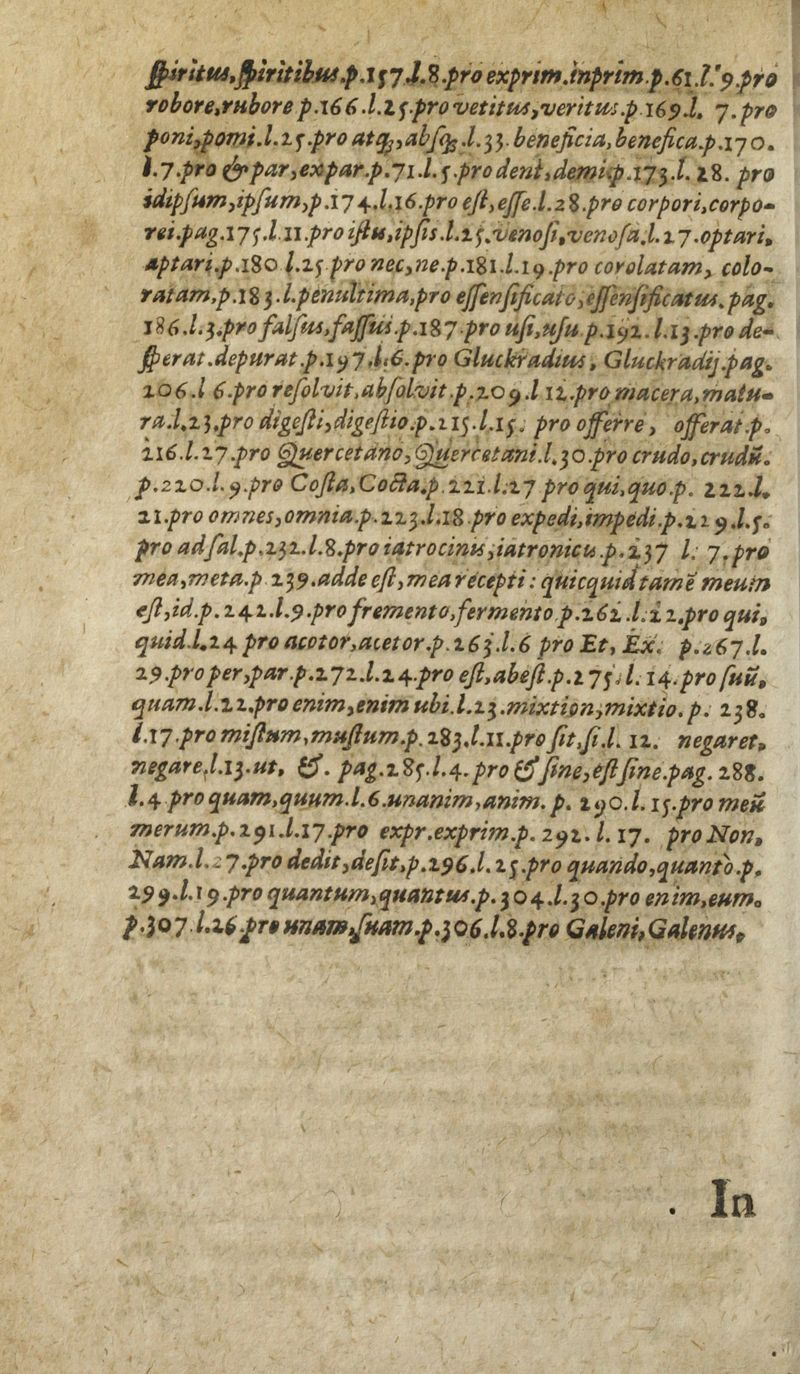 ſpiritus,ſpiritibus.p.157.l.8.pro exprim.inprim.p.61.l.9.pro
robore,rubore p.166.l.25.pro vetitus,veritus.p.169.l. 7.pro
poni,pomi.l.25.pro atq;,abſq;.l.33.beneficia,benefica.p.170.
l.7.pro & par,expar.p.71.l.5.pro deni,demi.p.173.l. 28. pro
idipſum,ipſum,p.174.l.16.pro eſt,eſſe.l.28.pro corpori,corpo-
rei.pag.175.l.11.pro iſtu,ipſis.l.25.venoſi,venoſa.l.27.optari,
aptari.p.180 l.25 pro nec,ne.p.181.l.19.pro corolatam, colo-
ratam,p.183.l.penultima,pro eſſenſificato,eſſenſificatus.pag.
186.l.3.pro falſus,faſſus.p.187.pro uſi,uſu.p.192.l.13.pro de-
ſperat.depurat.p.197.l.6.pro Gluckradius, Gluckradij.pag.
206.l 6.pro reſolvit,abſolvit.p.209.l 12.pro macera,matu-
ra.l.23.pro digeſti,digeſtio.p.215.l.15. pro offerre, offerat.p.
216.l.27.pro Quercetano,Quercetani.l.30.pro crudo,crudū.
p.220.l.9.pro Coſta,Cocta.p.221.l.27 pro qui,quo.p. 222.l.
21.pro omnes,omnia.p.223.l.18.pro expedi,impedi.p.229.l.5.
pro adſal.p.232.l.8.pro iatrocinus,iatronicu.p.237 l. 7.pro
mea,meta.p.239.adde eſt,mea recepti: quicquid tamē meum
eſt,id.p.242.l.9.pro fremento,fermento.p.262.l.12.pro qui,
quid.l.24 pro acotor,acetor.p.263.l.6 pro Et, Ex. p.267.l.
29.pro per,par.p.272.l.24.pro eſt,abeſt.p.275.l.14.pro ſuū,
quam.l.22.pro enim,enim ubi.l.23.mixtion,mixtio.p. 238.
l.17.pro miſtum,muſtum.p.283.l.11.pro ſit,ſi.l. 12. negaret,
negare.l.13.ut, &. pag.285.l.4.pro & ſine,eſt ſine.pag. 288.
l.4 pro quam,quum.l.6.unanim,anim. p. 290.l.15.pro meū
merum.p.291.l.17.pro expr.exprim.p.292.l.17. pro Non,
Nam.l.27.pro dedit,deſit,p.296.l.25.pro quando,quanto.p.
299.l.19.pro quantum,quantus.p.304.l.30.pro enim,eum.
p.307.l.26 pro unam,ſuam.p.306.l.8.pro Galeni,Galenus,
. In